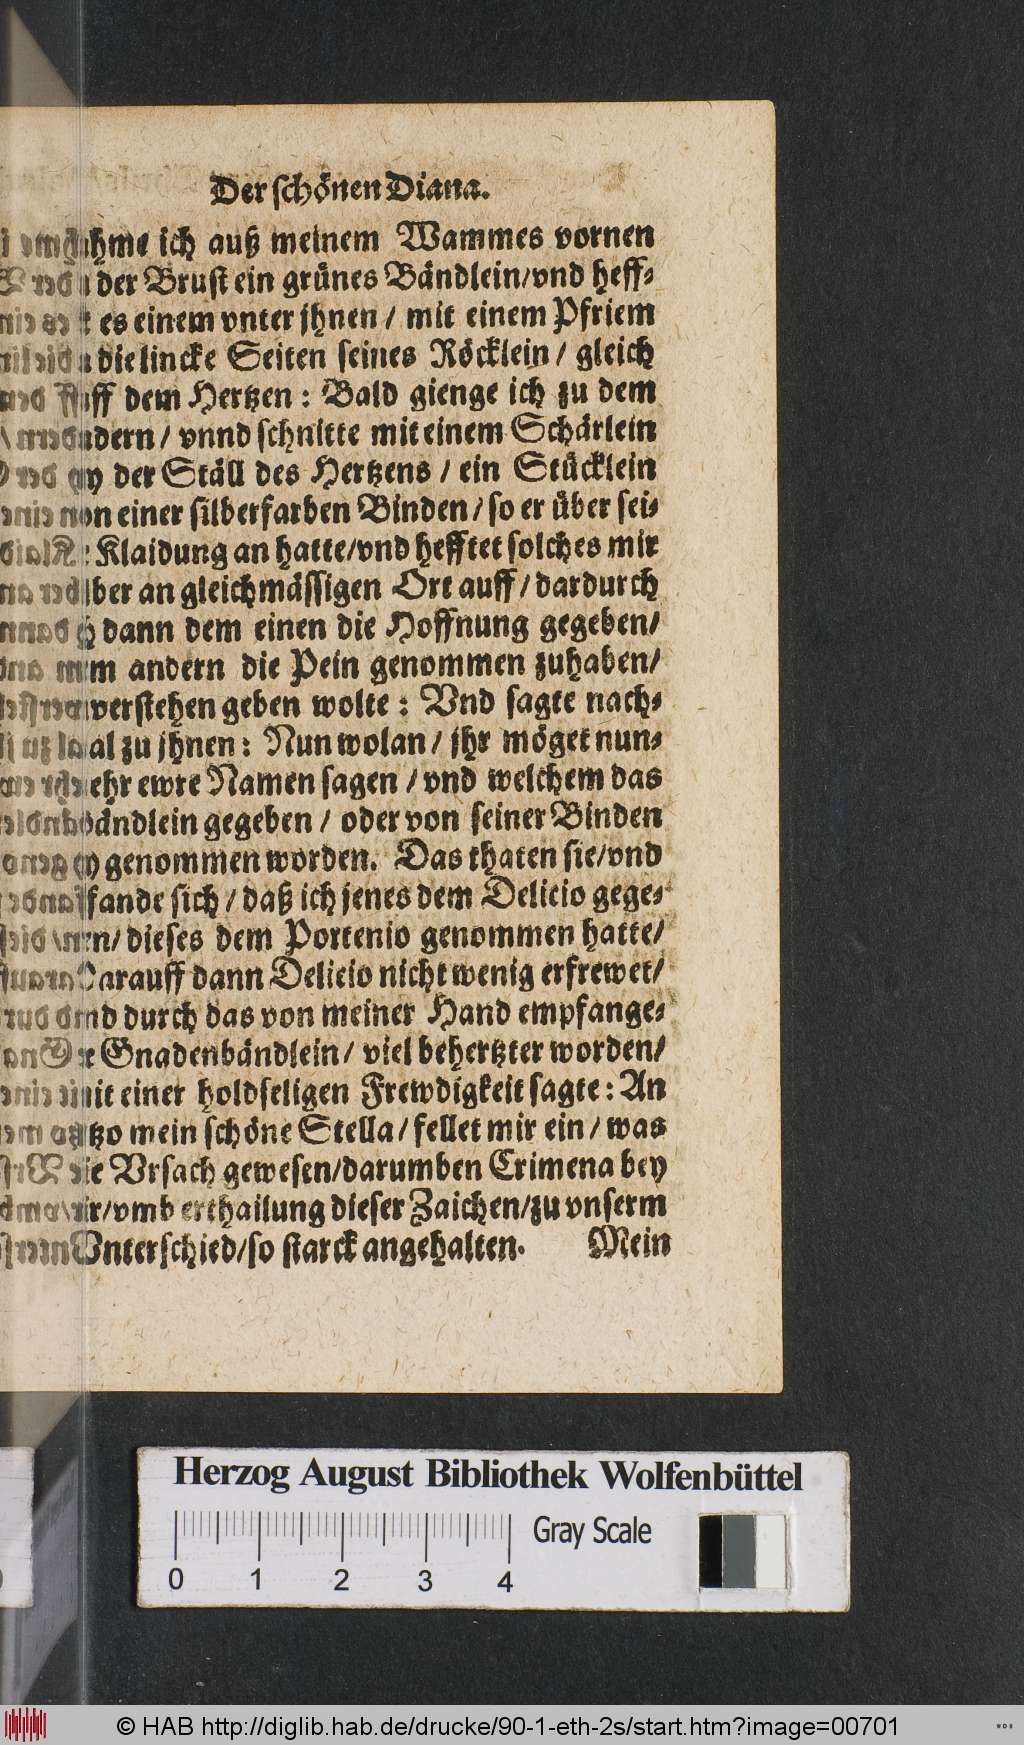 Der schönen Diana.
nahme ich auß meinem Wammes vornen
an der Brust ein grünes Bändlein/vnd heff-
t es einem vnter jhnen / mit einem Pfriem
an die lincke Seiten seines Röcklein / gleich
auff dem Hertzen : Bald gienge ich zu dem
andern / vnnd schnitte mit einem Schärlein
an der Ställ des Hertzens / ein Stücklein
von einer silberfarben Binden / so er über sei-
Klaidung an hatte/vnd hefftet solches mir
selber an gleichmässigen Ort auff / dardurch
ich dann dem einen die Hoffnung gegeben/
dem andern die Pein genommen zuhaben/
verstehen geben wolte : Vnd sagte nach-
mal zu jhnen : Nun wolan / jhr möget nun-
mehr ewre Namen sagen / vnd welchem das
Bändlein gegeben / oder von seiner Binden
genommen worden. Das thaten sie/vnd
fande sich / daß ich jenes dem Delicio gege-
ben/ dieses dem Portenio genommen hatte/
Darauff dann Delicio nicht wenig erfrewet/
vnd durch das von meiner Hand empfange-
ne Gnadenbändlein / viel behertzter worden/
mit einer holdseligen Frewdigkeit sagte : An
jetzo mein schöne Stella / fellet mir ein / was
die Vrsach gewesen/darumben Crimena bey
mir/vmb erthailung dieser Zaichen/zu vnserm
Vnterschied/so starck angehalten. Mein
Herzog August Bibliothek Wolfenbüttel
0 1 2 3 4 Gray Scale
© HAB http://diglib.hab.de/drucke/90-1-eth-2s/start.htm?image=00701